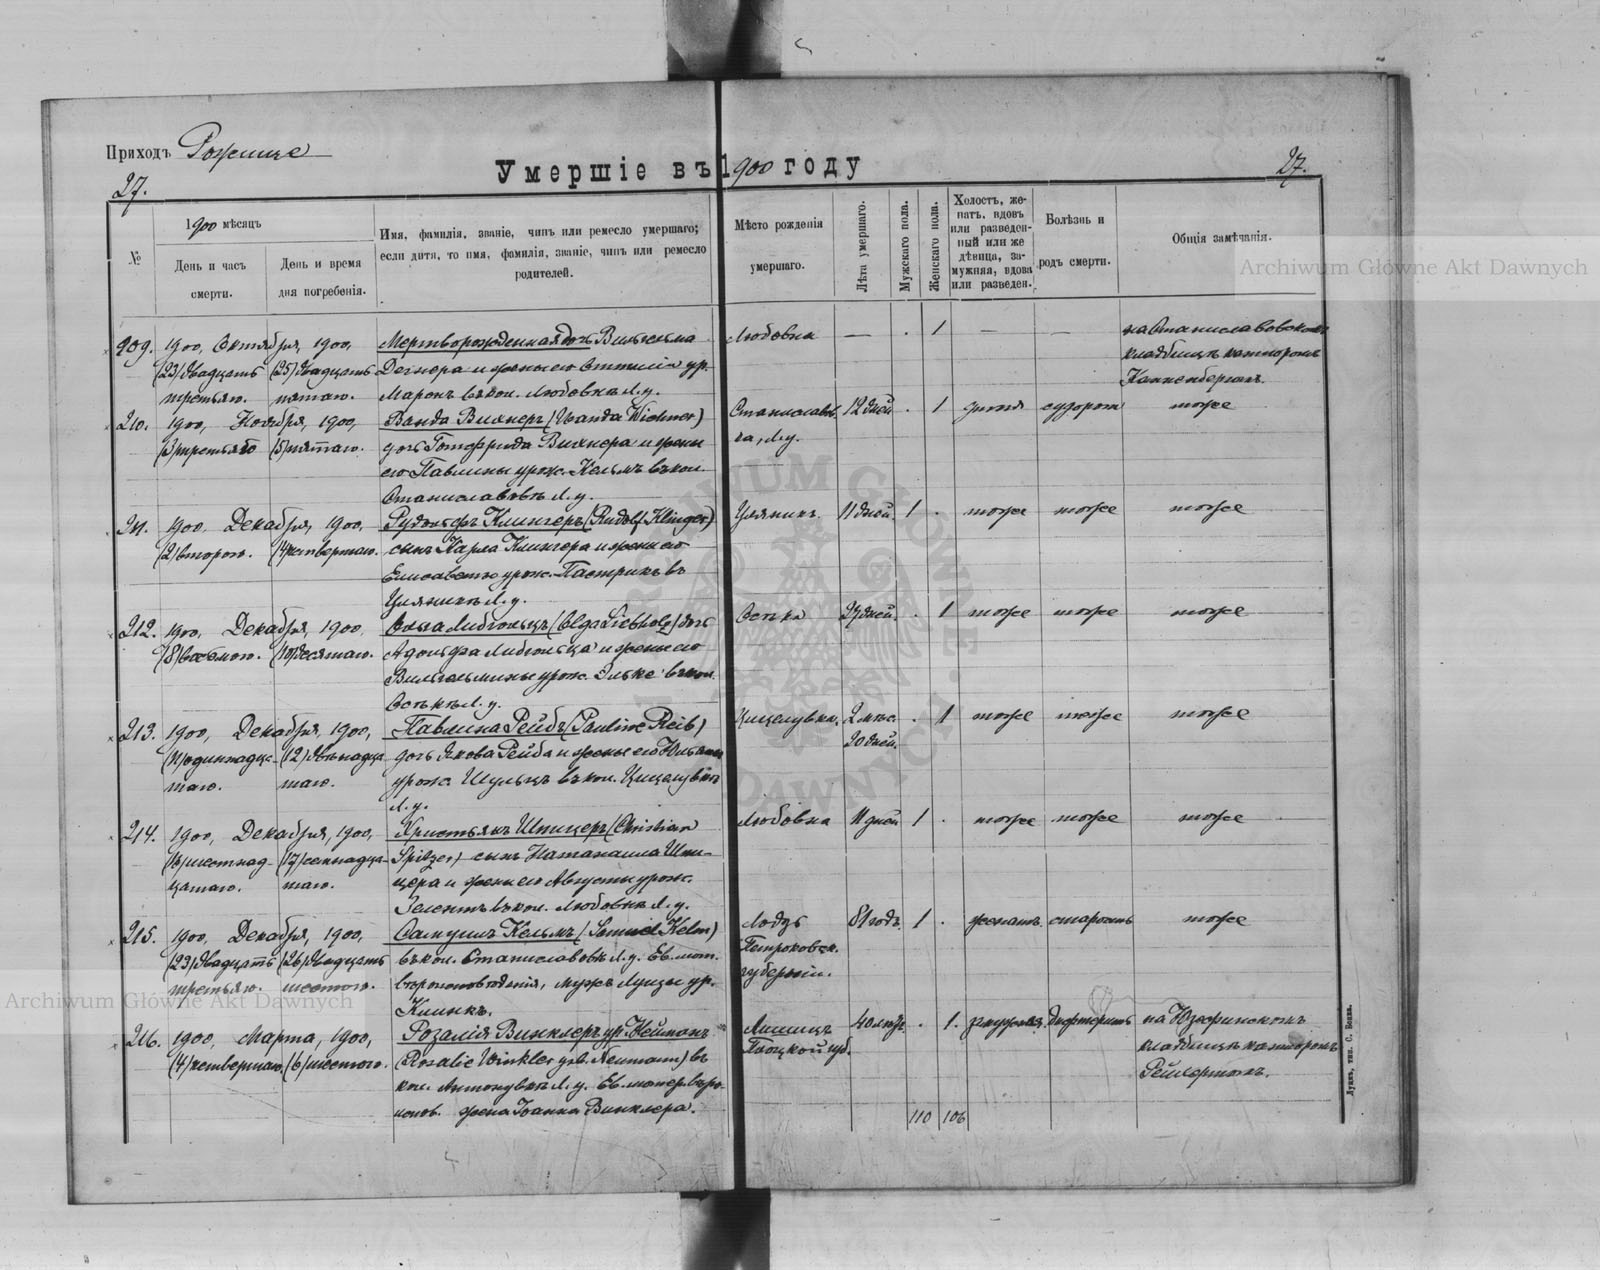 Приходъ Рожище
Умершіе въ 1900 году
27.
27.
№
1900 мѣсяцъ
День и часъ смерти.
День и время дня погребенія.
Имя, фамилія, званіе, чинъ или ремесло умершаго; если дитя, то имя, фамилія, званіе, чинъ или ремесло родителей.
Мѣсто рожденія умершаго.
Лѣта умершаго.
Мужскаго пола.
Женскаго пола.
Холостъ, женатъ, вдовъ или разведенный или же дѣвица, замужняя, вдова или разведен.
Болѣзнь и родъ смерти.
Общія замѣчанія.
Archiwum Główne Akt Dawnych
209. 1900, Октября, 1900, Мертворожденная дочь Вильгельма Любовка — . 1 — — на Станиславовскомъ
(23) двадцать (25) двадцать Дегнера и жены его Оттиліи ур. кладбищѣ канторомъ
третьяго. пятаго. Марокъ въ кол. Любовкѣ Л. у. Конненбергомъ.
210. 1900, Ноября, 1900, Ванда Вихнеръ (Wanda Wichner) Станиславов- 12 дней . 1 дитя судорож тоже
(3) третьяго (5) пятаго. дочь Готфрида Вихнера и жены ка, Л. у.
его Павлины урож. Кельмъ въ кол.
Станиславовкѣ Л. у.
211. 1900, Декабря, 1900, Рудольфъ Клингеръ (Rudolf Klinger) Уляники 11 дней. 1 . тоже тоже тоже
(2) второго. (4) четвертаго. сынъ Карла Клингера и жены его
Елисаветы урож. Пастрикъ въ
Уляникѣ Л. у.
212. 1900, Декабря, 1900, Ольга Либгольцъ (Olga Liebholz) дочь Осѣка 27 дней. . 1 тоже тоже тоже
(8) восьмого. (10) десятаго. Адольфа Либгольца и жены его
Вильгельмины урож. Эльке въ кол.
Осѣкѣ Л. у.
213. 1900, Декабря, 1900, Павлина Рейбъ (Pauline Reib) Цицелувка. 2 мѣс. . 1 тоже тоже тоже
(11) одиннадца- (12) двѣнадца- дочь Якова Рейба и жены его 20 дней.
таго. таго. урож. Шульцъ въ кол. Цицелувкѣ
Л. у.
214. 1900, Декабря, 1900, Христьянъ Шпицеръ (Christian Любовка 11 дней 1 . тоже тоже тоже
(16) шестнад- (17) семнадца- Spitzer) сынъ Натанаила Шпи-
цатаго. таго. цера и жены его Августы урож.
Зелентъ въ кол. Любовкѣ Л. у.
215. 1900, Декабря, 1900, Самуилъ Кельмъ (Samuel Kelm) Лодзь 81 годъ. 1 . женатъ. старость тоже
(23) двадцать (26) двадцать въ кол. Станиславовкѣ Л. у. Ев. лют. Петроковск.
третьяго. шестого. вѣроисповѣденія, мужъ Луизы ур. губерніи.
Клинкъ.
216. 1900, Марта, 1900, Розалія Винклеръ ур. Нейманъ Липицъ 40 лѣтъ. . 1. замужняя. дифтеритъ на Юзефинскомъ
(4) четвертаго. (6) шестого. (Rosalie Winkler geb. Neumann) въ Плоцкой губ. кладбищѣ канторомъ
кол. Антонувкѣ Л. у. Ев. лютер. вѣро-
исповѣд. жена Іоанна Винклера.
110 106
Archiwum Główne Akt Dawnych
Луцкъ, тип. С. Бонка.
ARCHIWUM GŁÓWNE AKT DAWNYCH